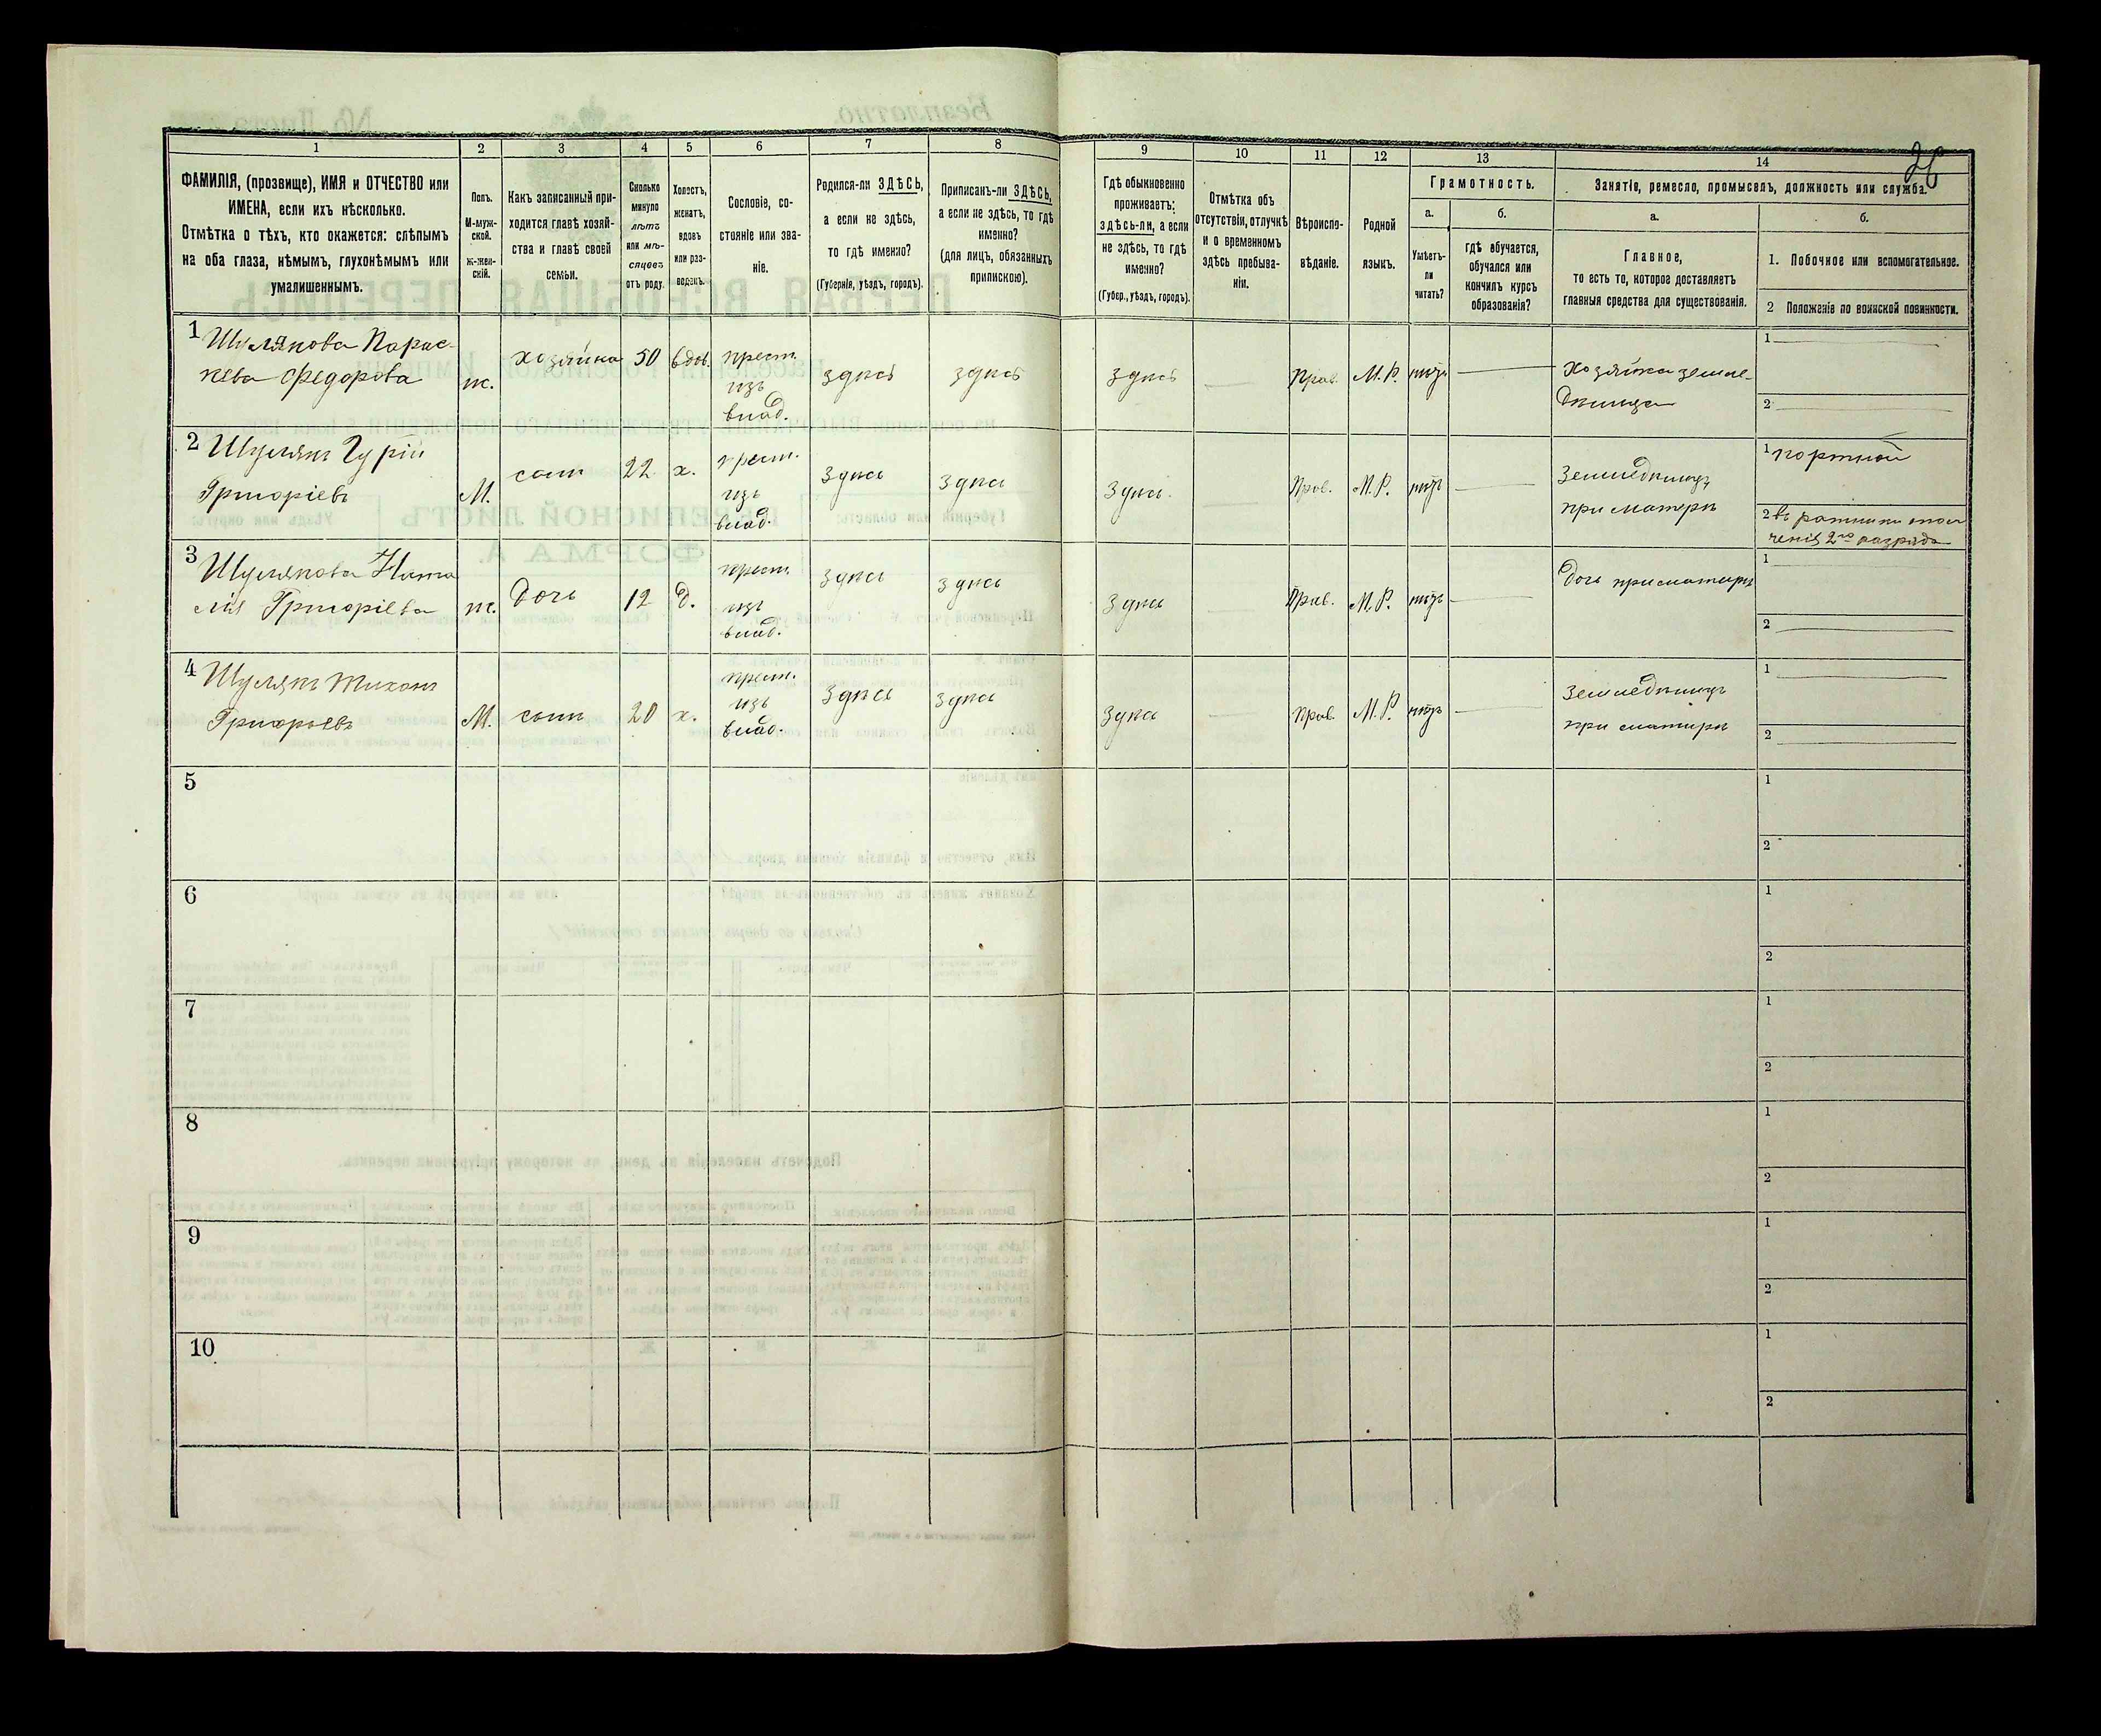 26
1
2
3
4
5
6
7
8
9
10
11
12
13
14
ФАМИЛІЯ, (прозвище), ИМЯ и ОТЧЕСТВО или
ИМЕНА, если ихъ нѣсколько.
Отмѣтка о тѣхъ, кто окажется: слѣпымъ
на оба глаза, нѣмымъ, глухонѣмымъ или
умалишеннымъ.
Полъ.
М-муж-
ской.
ж-жен-
скій.
Какъ записанный при-
ходится главѣ хозяй-
ства и главѣ своей
семьи.
Сколько
минуло
лѣтъ
или мѣ-
сяцевъ
отъ роду.
Холостъ,
женатъ,
вдовъ
или раз-
веденъ.
Сословіе, со-
стояніе или зва-
ніе.
Родился-ли ЗДѢСЬ,
а если не здѣсь,
то гдѣ именно?
(Губернія, уѣздъ, городъ).
Приписанъ-ли ЗДѢСЬ,
а если не здѣсь, то гдѣ
именно?
(для лицъ, обязанныхъ
припискою).
Гдѣ обыкновенно
проживаетъ:
здѣсь-ли, а если
не здѣсь, то гдѣ
именно?
(Губер., уѣздъ, городъ).
Отмѣтка объ
отсутствіи, отлучкѣ
и о временномъ
здѣсь пребыва-
ніи.
Вѣроиспо-
вѣданіе.
Родной
языкъ.
Грамотность.
а.
Умѣетъ-
ли
читать?
б.
гдѣ обучается,
обучался или
кончилъ курсъ
образованія?
Занятіе, ремесло, промыселъ, должность или служба.
а.
Главное,
то есть то, которое доставляетъ
главныя средства для существованія.
б.
1. Побочное или вспомогательное.
2 Положеніе по воинской повинности.
1 Шулякова Парас-
кева Федорова
ж.
хозяйка
50
вдов.
крест.
изъ
влад.
здѣсь
здѣсь
здѣсь
Прав.
М.Р.
нѣтъ
Хозяйка земле-
дѣлица
1
2
2 Шулякъ Гурій
Григоріевъ
М.
сынъ
22
х.
крест.
изъ
влад.
Здѣсь
Здѣсь
Здѣсь
Прав.
М.Р.
нѣтъ
Земледѣлецъ
при матери
1 портной
2 въ ратники опол
ченія 2го разряда
3 Шулякова Ната
лія Григоріева
ж.
Дочь
12
д.
крест.
изъ
влад.
Здѣсь
здѣсь
Здѣсь
Прав.
М.Р.
нѣтъ
Дочь при матери
1
2
4 Шулякъ Тихонъ
Григорьевъ
М.
сынъ
20
х.
крест.
изъ
влад.
Здѣсь
Здѣсь
Здѣсь
Прав.
М.Р.
нѣтъ
Земледѣлецъ
при матери
1
2
5
1
2
6
1
2
7
1
2
8
1
2
9
1
2
10
1
2